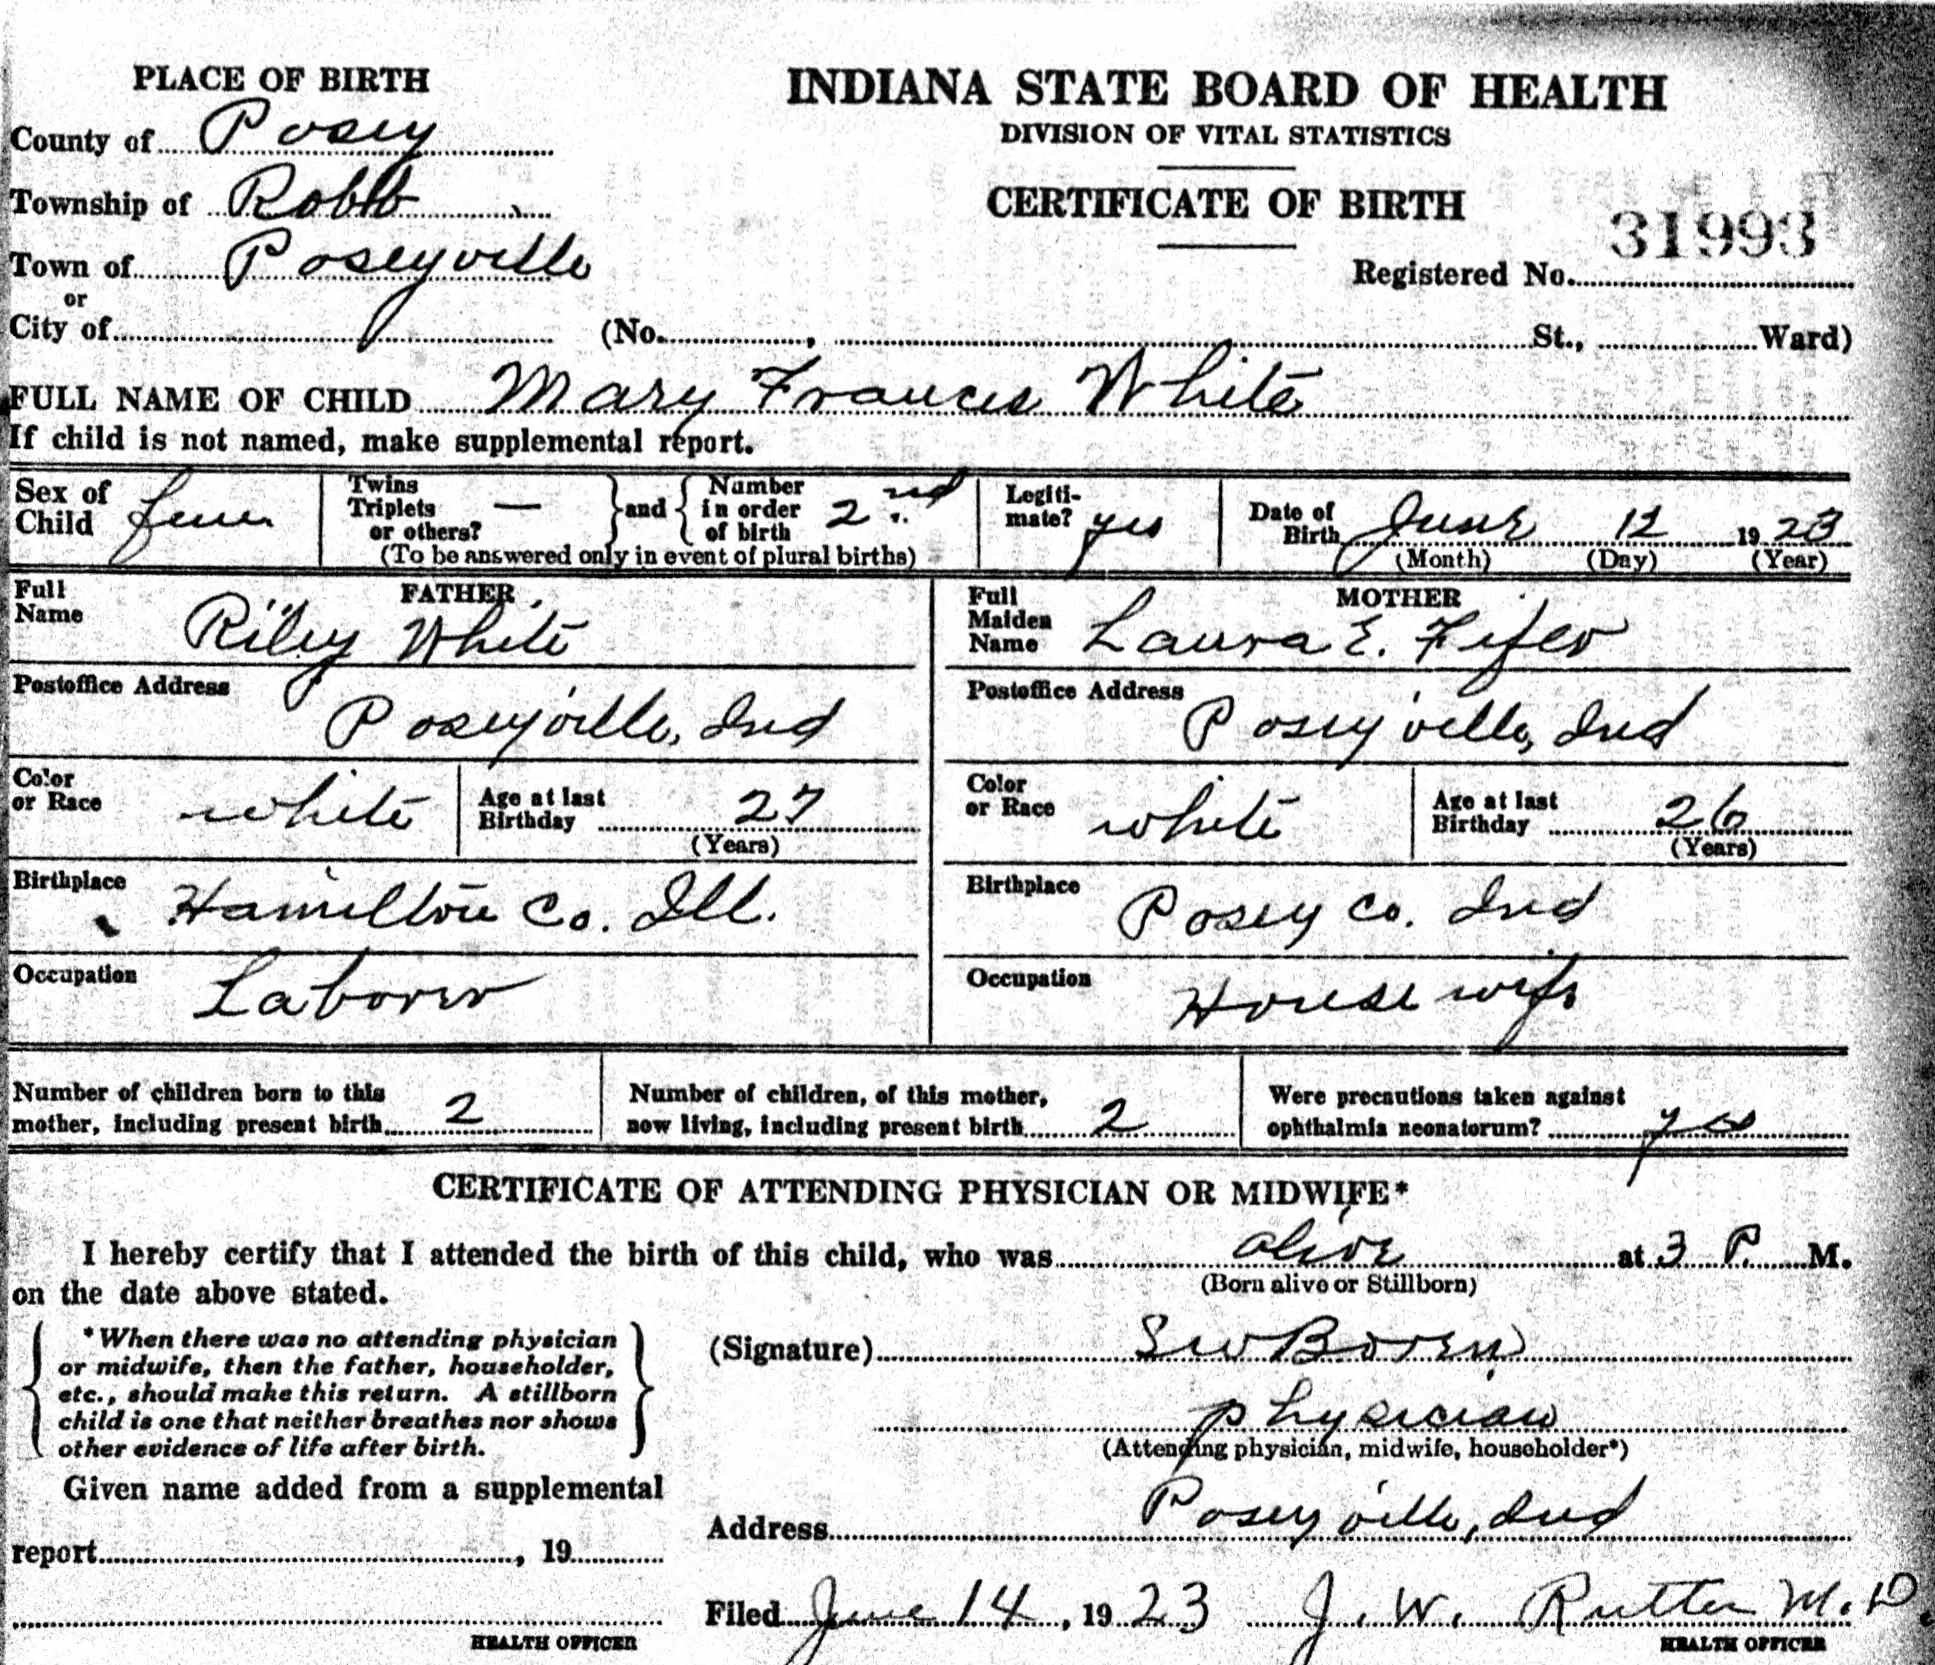 PLACE OF BIRTH
INDIANA STATE BOARD OF HEALTH
DIVISION OF VITAL STATISTICS
CERTIFICATE OF BIRTH
County of Posey
Township of Robb
Town of Poseyville
or
City of
31993
Registered No.
(No. , St., Ward)
FULL NAME OF CHILD Mary Frances White
If child is not named, make supplemental report.
Sex of Child fem
Twins Triplets or others? — and Number in order of birth 2nd
(To be answered only in event of plural births)
Legiti-mate? yes
Date of Birth June 12 1923
(Month) (Day) (Year)
FATHER
Full Name Riley White
MOTHER
Full Maiden Name Laura E. Fifer
Postoffice Address Poseyville, Ind
Postoffice Address Poseyville, Ind
Color or Race white
Age at last Birthday 27
(Years)
Color or Race white
Age at last Birthday 26
(Years)
Birthplace Hamilton Co. Ill.
Birthplace Posey Co. Ind
Occupation Laborer
Occupation House wife
Number of children born to this mother, including present birth 2
Number of children, of this mother, now living, including present birth 2
Were precautions taken against ophthalmia neonatorum? yes
CERTIFICATE OF ATTENDING PHYSICIAN OR MIDWIFE*
I hereby certify that I attended the birth of this child, who was alive at 3 P. M.
(Born alive or Stillborn)
on the date above stated.
*When there was no attending physician
or midwife, then the father, householder,
etc., should make this return. A stillborn
child is one that neither breathes nor shows
other evidence of life after birth.
(Signature) SW Boren
physician
(Attending physician, midwife, householder*)
Given name added from a supplemental
report , 19
Address Poseyville, Ind
Filed June 14, 1923 J. W. Rutter M.D.
HEALTH OFFICER
HEALTH OFFICER